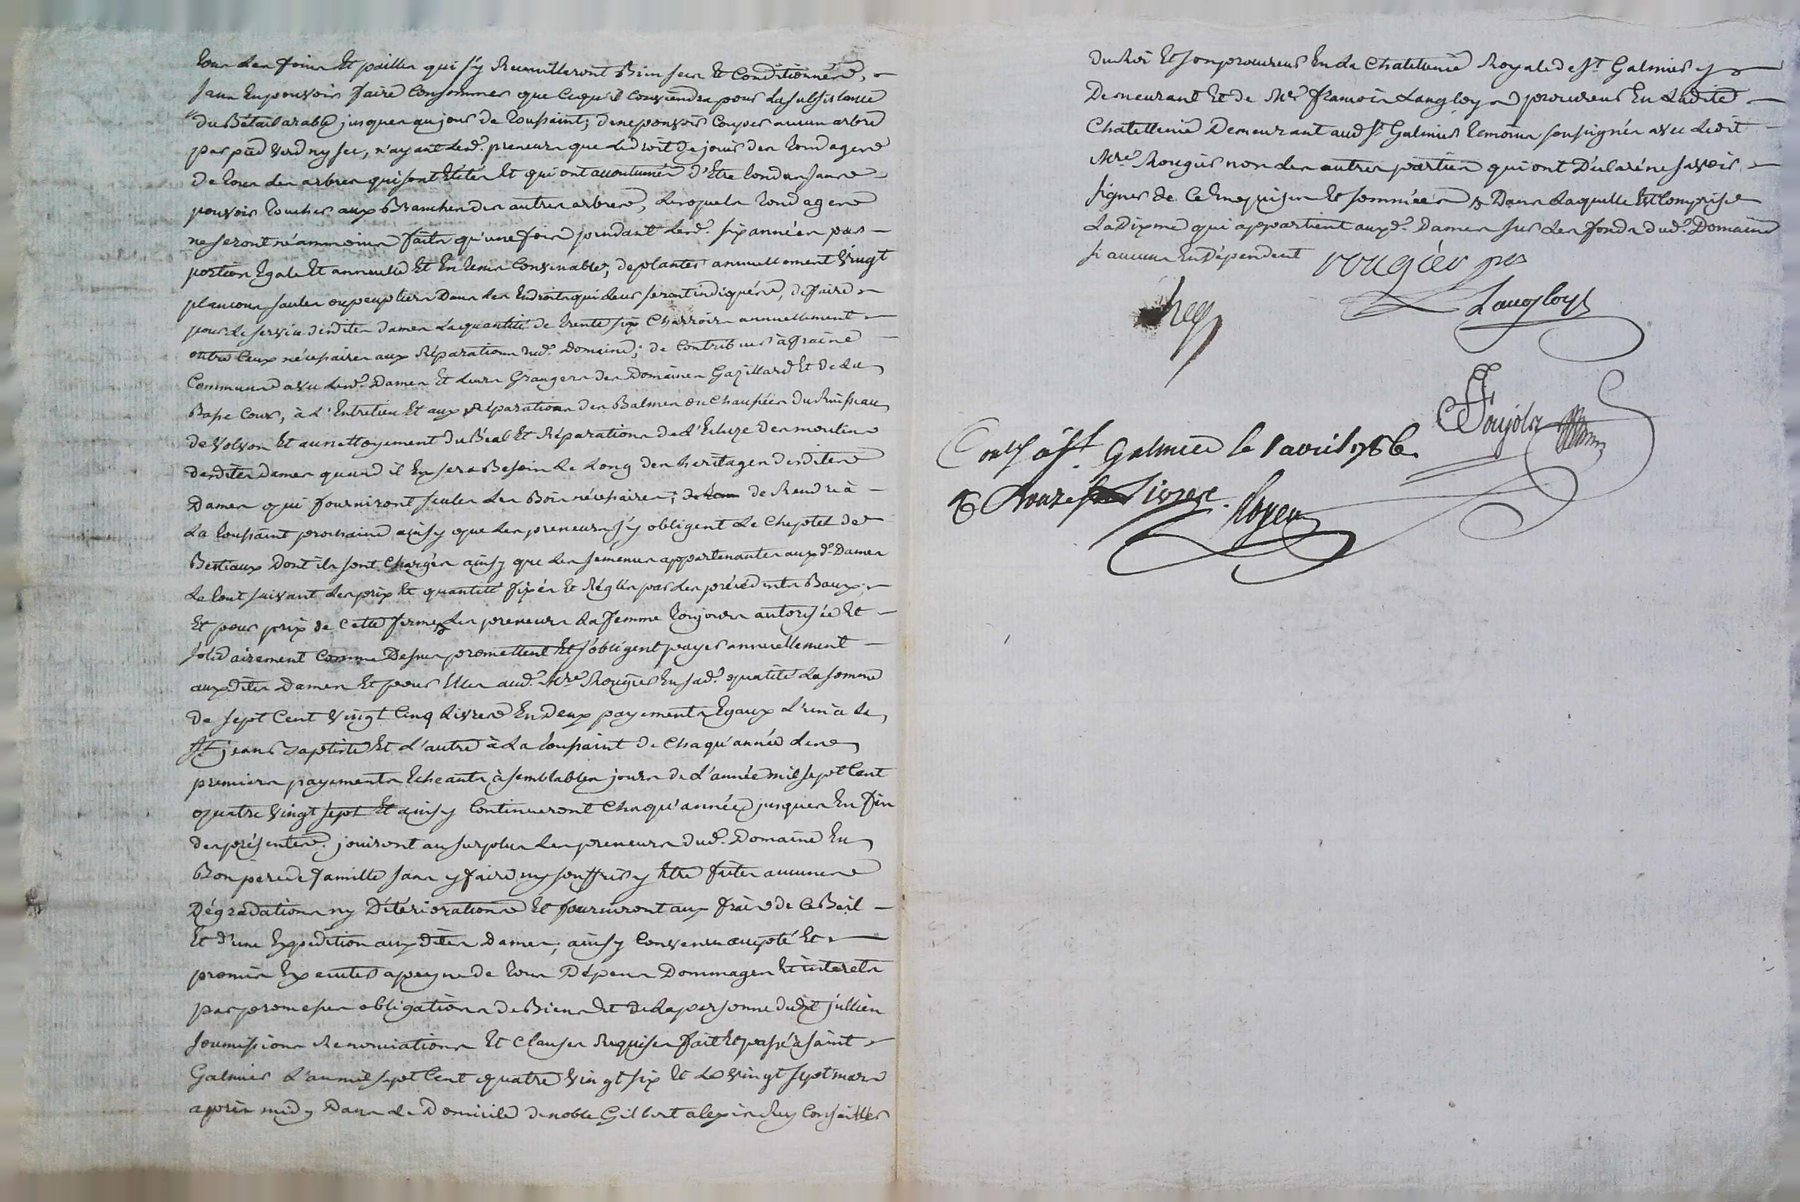 tous les foins et pailles qui s'y Recueilleront Bien secs et Conditionnéz,
sans En pouvoir faire Consommer que Ce qu'il Conviendra pour la subsistance
du Bétail arable jusques au jour de toussaint; de ne pouvoir Couper aucun arbre
par pied verd ny sec, n'ayant lesd. preneurs que le droit de jouir des tondages
de tous les arbres qui sont Etétés Et qui ont accoutumés d'Etre tondus sans
pouvoir toucher aux Branches des autres arbres, lesquels tondages
ne seront néanmoins faits qu'une fois pendant lesd. six années par
portion Egale Et annuelle Et En tems Convenable, de planter annuellement Vingt
plançons saules ou peupliers Dans les Endroits qui leur seront indiqués, de faire
pour le service desdites dames la quantité de trente six Charrois annuellement
outre Ceux nécessaires aux Réparations dud. Domaine; de Contribuer à fraix
Communs avec lesd. Dames Et leurs Grangers des Domaines Gazillard Et de la
Basse Cour, à l'Entretien Et aux Réparations des Balmes ou Chaussées du Ruisseau
de Volvon Et au nettoyement du Béal Et Réparations de l'Ecluze des moulins
desdites Dames quand il En sera Besoin le Long des heritages desdites
Dames qui fourniront seules les Bois nécessaires; de Rendre à
La toussaint prochaine ainsy que les preneurs s'y obligent le Cheptel de
Bestiaux Dont ils sont Chargés ainsy que les semences appartenantes auxd. Dames
Le tout suivant les prix Et quantité fixés Et Réglés par les précédents Baux;
Et pour prix de Cette ferme, les preneurs la femme toujours autorisée Et
solidairement Comme Dessus promettent Et s'obligent payer annuellement
auxdites Dames Et pour Elles aud. Mre Rougier En sad. qualité la somme
de sept Cent Vingt Cinq Livres En Deux payements Egaux l'un à la
St jean Baptiste Et l'autre à La toussaint de Chaqu'année les
premiers payements Echeants à semblables jours de l'année mil sept Cent
quatre Vingt sept Et ainsy Continueront Chaqu'année jusques En fin
des présentes. jouiront au surplus les preneurs dud. Domaine En
Bon pere de famille sans y faire ny souffrir y Etre faites aucunes
Dégradations ny Détériorations Et fourniront aux fraix de Ce Bail
Et d'une Expédition auxdites Dames; ainsy Convenu accepté Et
promis Exécuter a peyne de tous Dépens Dommages Et interets
par promesses obligations de Biens Et de la personne dudit jullien
soumissions Renonciations Et Clauses Requises fait Et passé à saint
Galmier L'an mil sept Cent quatre Vingt six Et le Vingt sept mars
après midy Dans le Domicile de noble Gilbert alexis Rey Conseiller
du Roi Et son procureur En la Chatellenie Royale de St Galmier y
Demeurant Et de Mre françois Langloys procureur En Ladite
Chatellenie Demeurant aud. St Galmier temoins soussignés avec ledit
Mre Rougier non les autres parties qui ont Déclaré ne savoir
signer de Ce Enquises Et sommées Dans laquelle Est Comprise
La dixme qui appartient auxd. Dames sur les fonds dud. Domaine
si aucuns En dépendent
rougier
Rey
Langloys
Pujolz
Conlé à St Galmier le 1 avril 1786
Livres
Royer